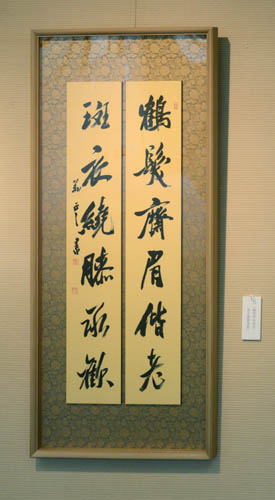 鶴髮齊眉偕老
斑衣繞膝承歡